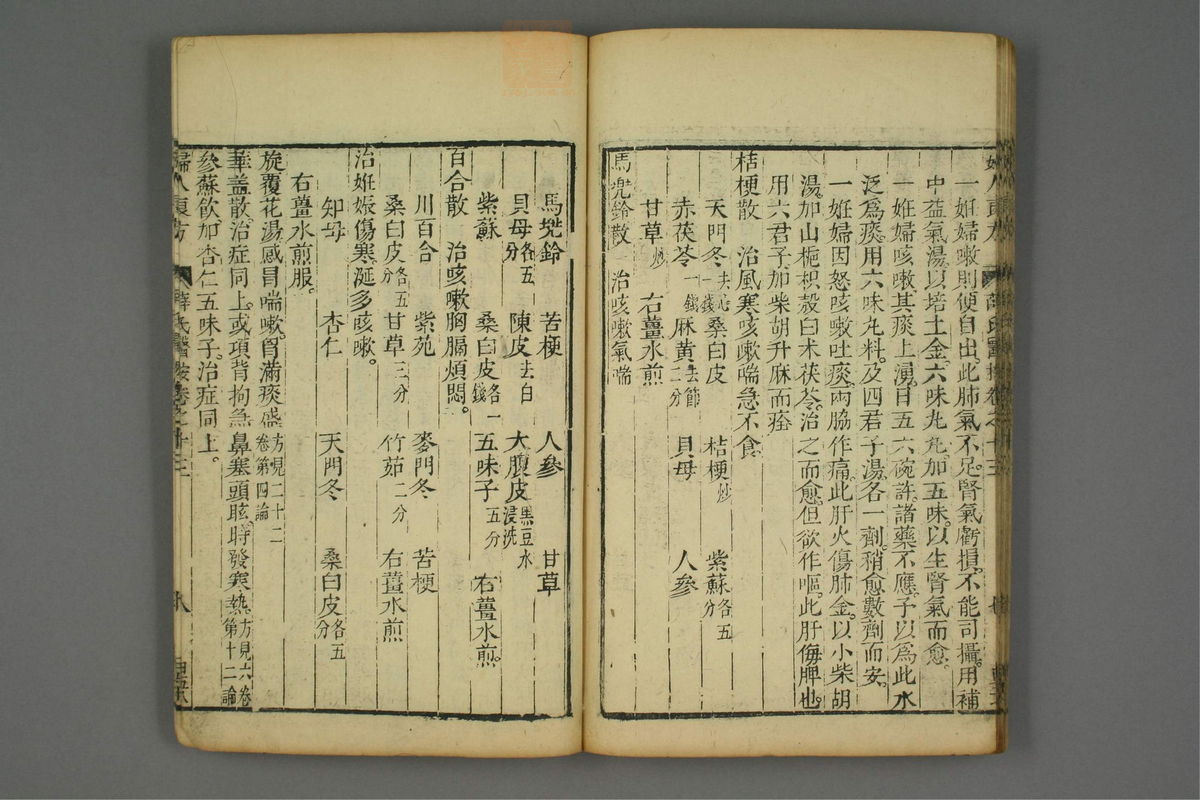 一妊婦嗽則便自出。此肺氣不足。腎氣虧損。不能司攝。用補
中益氣湯。以培土金。六味丸加五味。以生腎氣而愈。
一妊婦咳嗽。其痰上湧。日五六碗許。諸藥不應。予以為此水
泛為痰。用六味丸料。及四君子湯。各一劑。稍愈。數劑而安。
一妊婦因怒咳嗽吐痰。兩脇作痛。此肝火傷肺金。以小柴胡
湯。加山梔枳殼白朮茯苓。治之而愈。但欲作嘔。此肝侮脾也。
用六君子。加柴胡升麻而痊
桔梗散 治風寒咳嗽喘急不食
天門冬去心一錢 桑白皮 桔梗炒 紫蘇各五分
赤茯苓一錢 麻黃去節二分 貝母 人參
甘草炒 右薑水煎
馬兜鈴散 治咳嗽氣喘
馬兜鈴 苦梗 人參 甘草
貝母各五分 陳皮去白 大腹皮黑豆水浸洗
紫蘇 桑白皮各一錢 五味子五分 右薑水煎。
百合散 治咳嗽胸膈煩悶。
川百合 紫苑 麥門冬 苦梗
桑白皮各五分 甘草三分 竹茹二分 右薑水煎
治妊娠傷寒涎多咳嗽。
知母 杏仁 天門冬 桑白皮各五分
右薑水煎服。
旋覆花湯感冒喘嗽。胷滿痰盛方見二十二卷第四論
華蓋散。治症同上。或項背拘急。鼻塞頭眩。時發寒熱。方見六卷第十二論
參蘇飲加杏仁五味子。治症同上。
婦人良方 薛氏醫按卷之十三 八